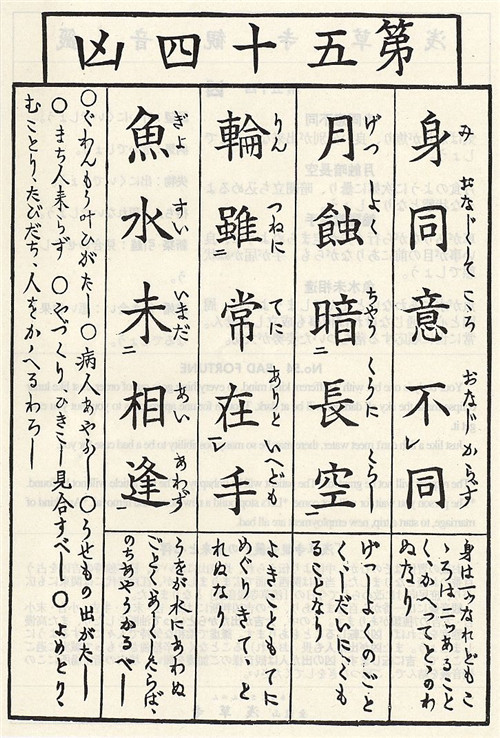 第五十四凶
身同意不同
み おなじくして こころ おなじからず
身は一ツなれどもこ
ゝろは二ツあること
くかつてとのわ
ぬなり
月蝕暗長空
げつ しよく ちやう くうに くらし
げつしよくのごと
くしだいにくも
ることなり
輪雖常在手
りん つねに てに ありと いども
よきことももてに
めぐりきて、と
れぬなり
魚水未相逢
ぎよ すい いまだ あい あわず
うをが水にあわぬ
ごとくあり
のちあやうかるべし
○ぐわんもう叶ひがたし ○病人あやふし ○うせもの出がたし
○まち人来らず ○やづくりひきこし見合すべし ○よめとり、
むことり、たびだち、人をかゝへるわろし